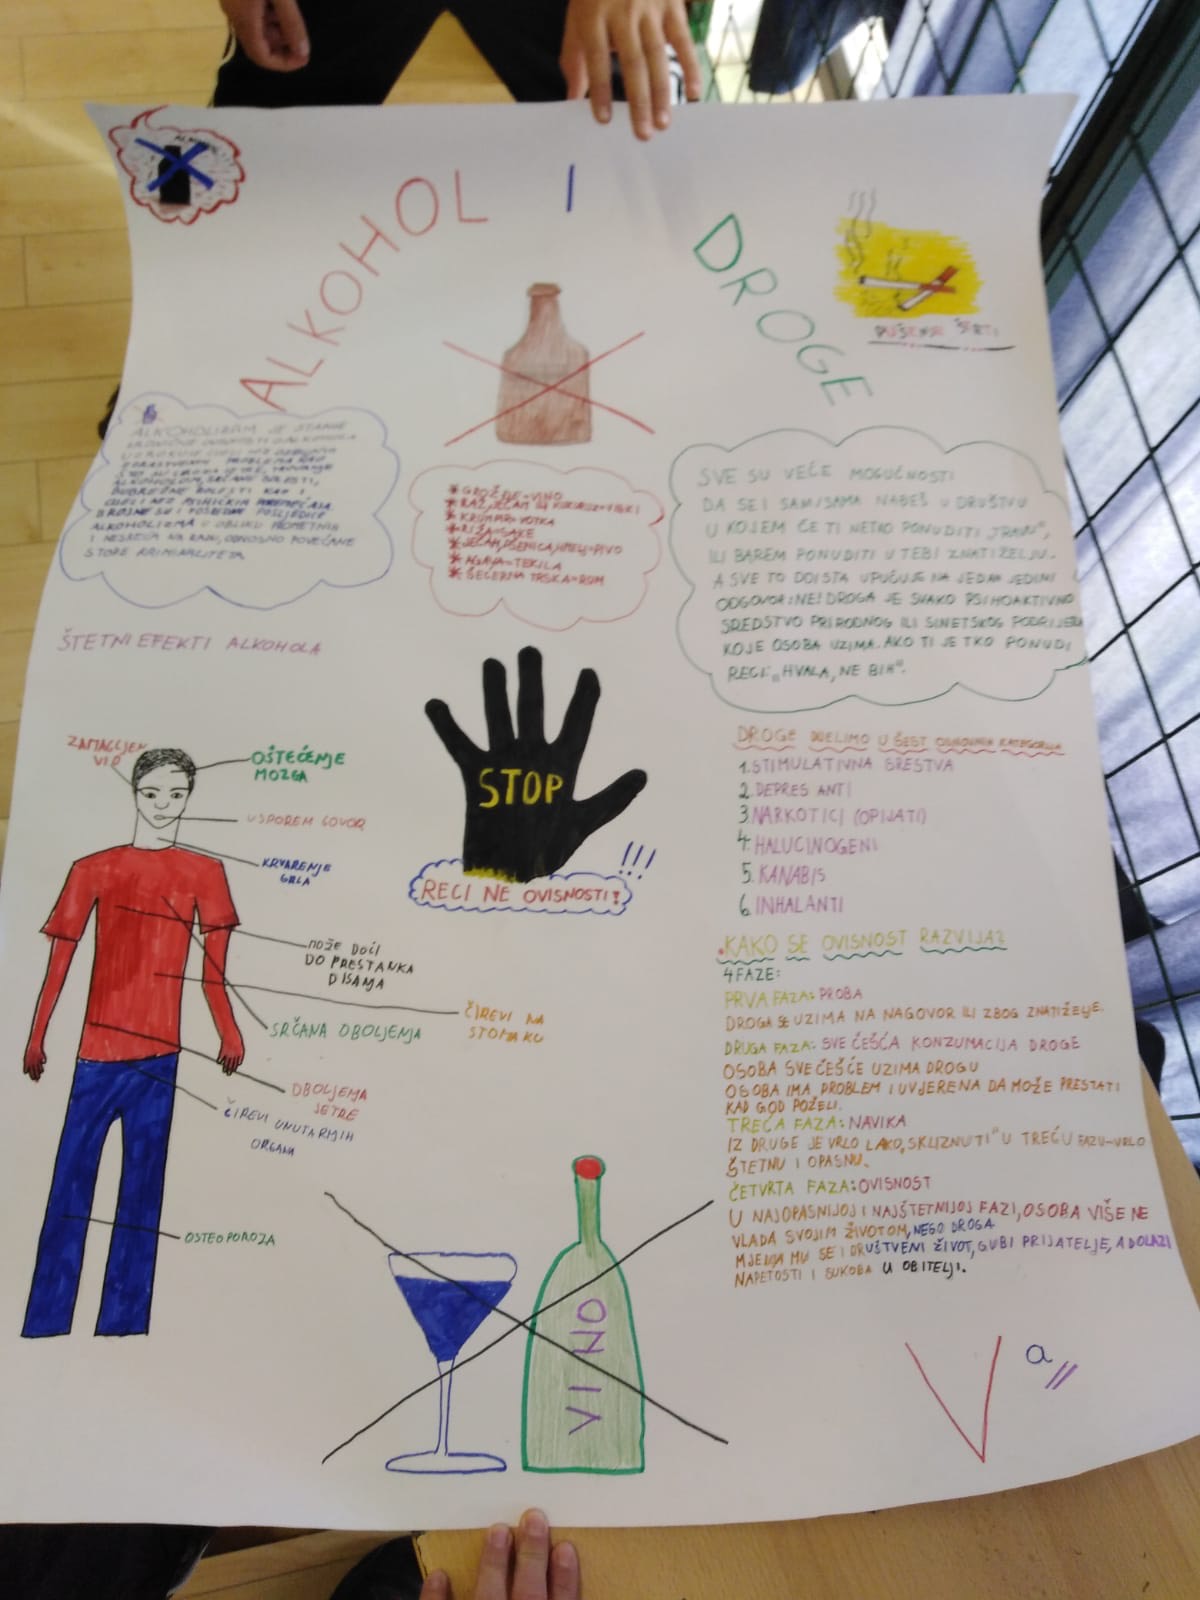 ALKOHOL I DROGE
PUŠENJE ŠTETI
ALKOHOLIZAM JE STANJE
KRONIČNE OVISNOSTI O ALKOHOLU
UZROKUJE CIJELI NIZ OZBILJNIH
ZDRAVSTVENIH PROBLEMA KAO
ŠTO SU CIROZA JETRE, TROVANJE
ALKOHOLOM, SRČANE BOLESTI,
BUBREŽNE BOLESTI KAO I
CIJELI NIZ PSIHIČKIH POREMEĆAJA.
BROJNE SU I POSREDNE POSLJEDICE
ALKOHOLIZMA U OBLIKU PROMETNIH
I NESREĆA NA RADU, ODNOSNO POVEĆANE
STOPE KRIMINALITETA
* GROŽĐE=VINO
* RAŽ, JEČAM ILI KUKURUZ=VISKI
* KRUMPIR=VOTKA
* RIŽA=SAKE
* JEČAM, PŠENICA, HMELJ=PIVO
* AGAVA=TEKILA
* ŠEĆERNA TRSKA=RUM
SVE SU VEĆE MOGUĆNOSTI
DA SE I SAM/SAMA NAĐEŠ U DRUŠTVU
U KOJEM ĆE TI NETKO PONUDITI „TRAVU",
ILI BAREM PONUDITI U TEBI ZNATIŽELJU.
A SVE TO DOISTA UPUĆUJE NA JEDAN JEDINI
ODGOVOR: NE! DROGA JE SVAKO PSIHOAKTIVNO
SREDSTVO PRIRODNOG ILI SINETSKOG PODRIJETLA
KOJE OSOBA UZIMA. AKO TI JE TKO PONUDI
RECI: „HVALA, NE BIH".
ŠTETNI EFEKTI ALKOHOLA
ZAMAGLJEN
VID
OŠTEĆENJE
MOZGA
USPOREN GOVOR
KRVARENJE
GRLA
MOŽE DOĆI
DO PRESTANKA
DISANJA
ČIREVI NA
STOMAKU
SRČANA OBOLJENJA
OBOLJENJA
JETRE
ČIREVI UNUTARNJIH
ORGANA
OSTEOPOROZA
STOP
RECI NE OVISNOSTI!
!!!
DROGE DIJELIMO U ŠEST OSNOVNIH KATEGORIJA
1. STIMULATIVNA SRESTVA
2. DEPRESANTI
3. NARKOTICI (OPIJATI)
4. HALUCINOGENI
5. KANABIS
6. INHALANTI
KAKO SE OVISNOST RAZVIJA?
4 FAZE:
PRVA FAZA: PROBA
DROGA SE UZIMA NA NAGOVOR ILI ZBOG ZNATIŽELJE.
DRUGA FAZA: SVE ČEŠĆA KONZUMACIJA DROGE
OSOBA SVE ČEŠĆE UZIMA DROGU
OSOBA IMA PROBLEM I UVJERENA DA MOŽE PRESTATI
KAD GOD POŽELI.
TREĆA FAZA: NAVIKA
IZ DRUGE JE VRLO LAKO „SKLIZNUTI" U TREĆU FAZU-VRLO
ŠTETNU I OPASNU.
ČETVRTA FAZA: OVISNOST
U NAJOPASNIJOJ I NAJŠTETNIJOJ FAZI, OSOBA VIŠE NE
VLADA SVOJIM ŽIVOTOM, NEGO DROGA
MJENJA MU SE I DRUŠTVENI ŽIVOT, GUBI PRIJATELJE, A DOLAZI
NAPETOSTI I SUKOBA U OBITELJI.
VINO
V a